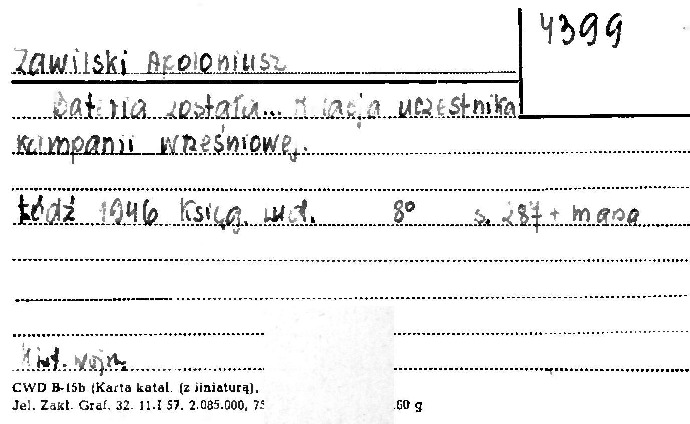 4399
Zawilski Apoloniusz
Bateria została... Relacja uczestnika
kampanii wrześniowej.
Łódź 1946 Księg. wyd. 8° s. 287 + mapa
Hist. wojn.
CWD B-15b (Karta katal. (z liniaturą),
Jel. Zakł. Graf. 32. 11.I 57. 2.085.000, 75 60 g